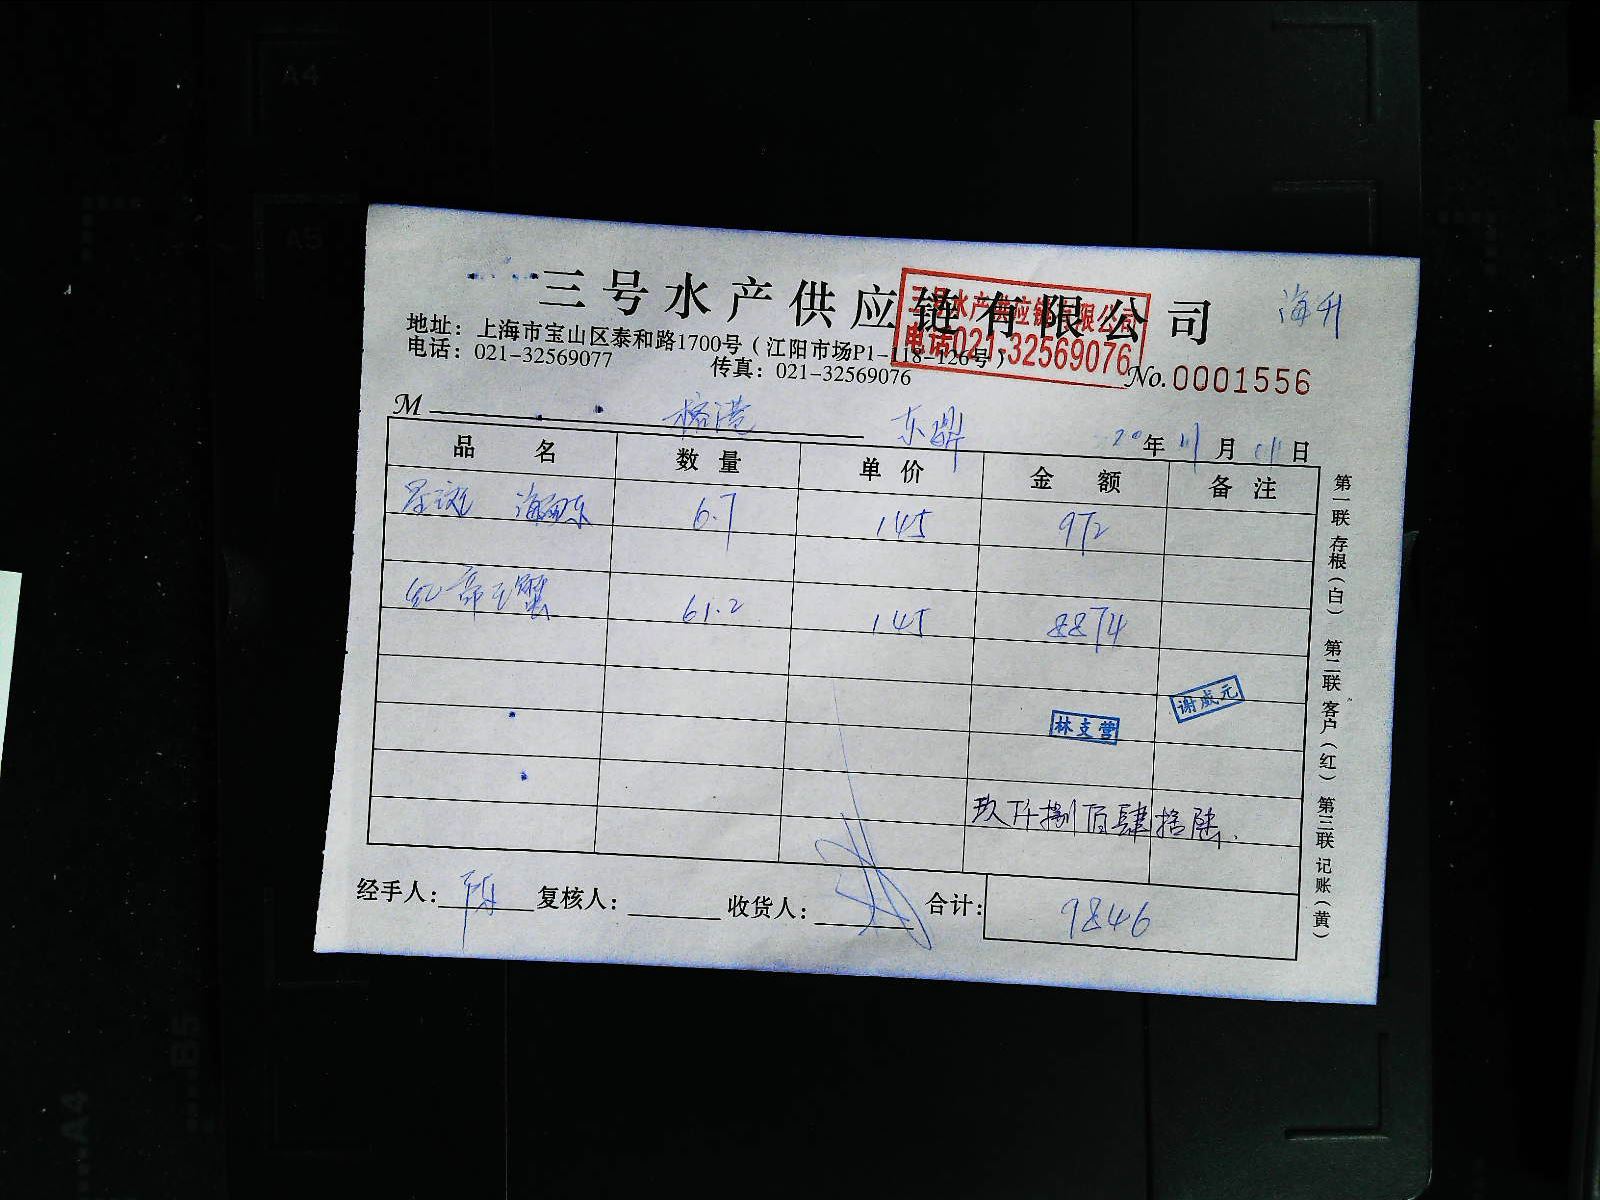 三号水产供应链有限公司
三号水产供应链有限公司
电话021-32569076
海升
地址：上海市宝山区泰和路1700号（江阳市场P1-118-126号）
电话：021-32569077 传真：021-32569076
No.0001556
M 榕港 东鼎 20年11月01日
品名 数量 单价 金额 备注
星斑 6.7 145 972
红帝王蟹 61.2 145 8874
谢咸元
林支营
玖仟捌佰肆拾陆
经手人：陈 复核人： 收货人： 合计：9846
第一联 存根（白） 第二联 客户（红） 第三联 记账（黄）
A4
A5
B5
A4